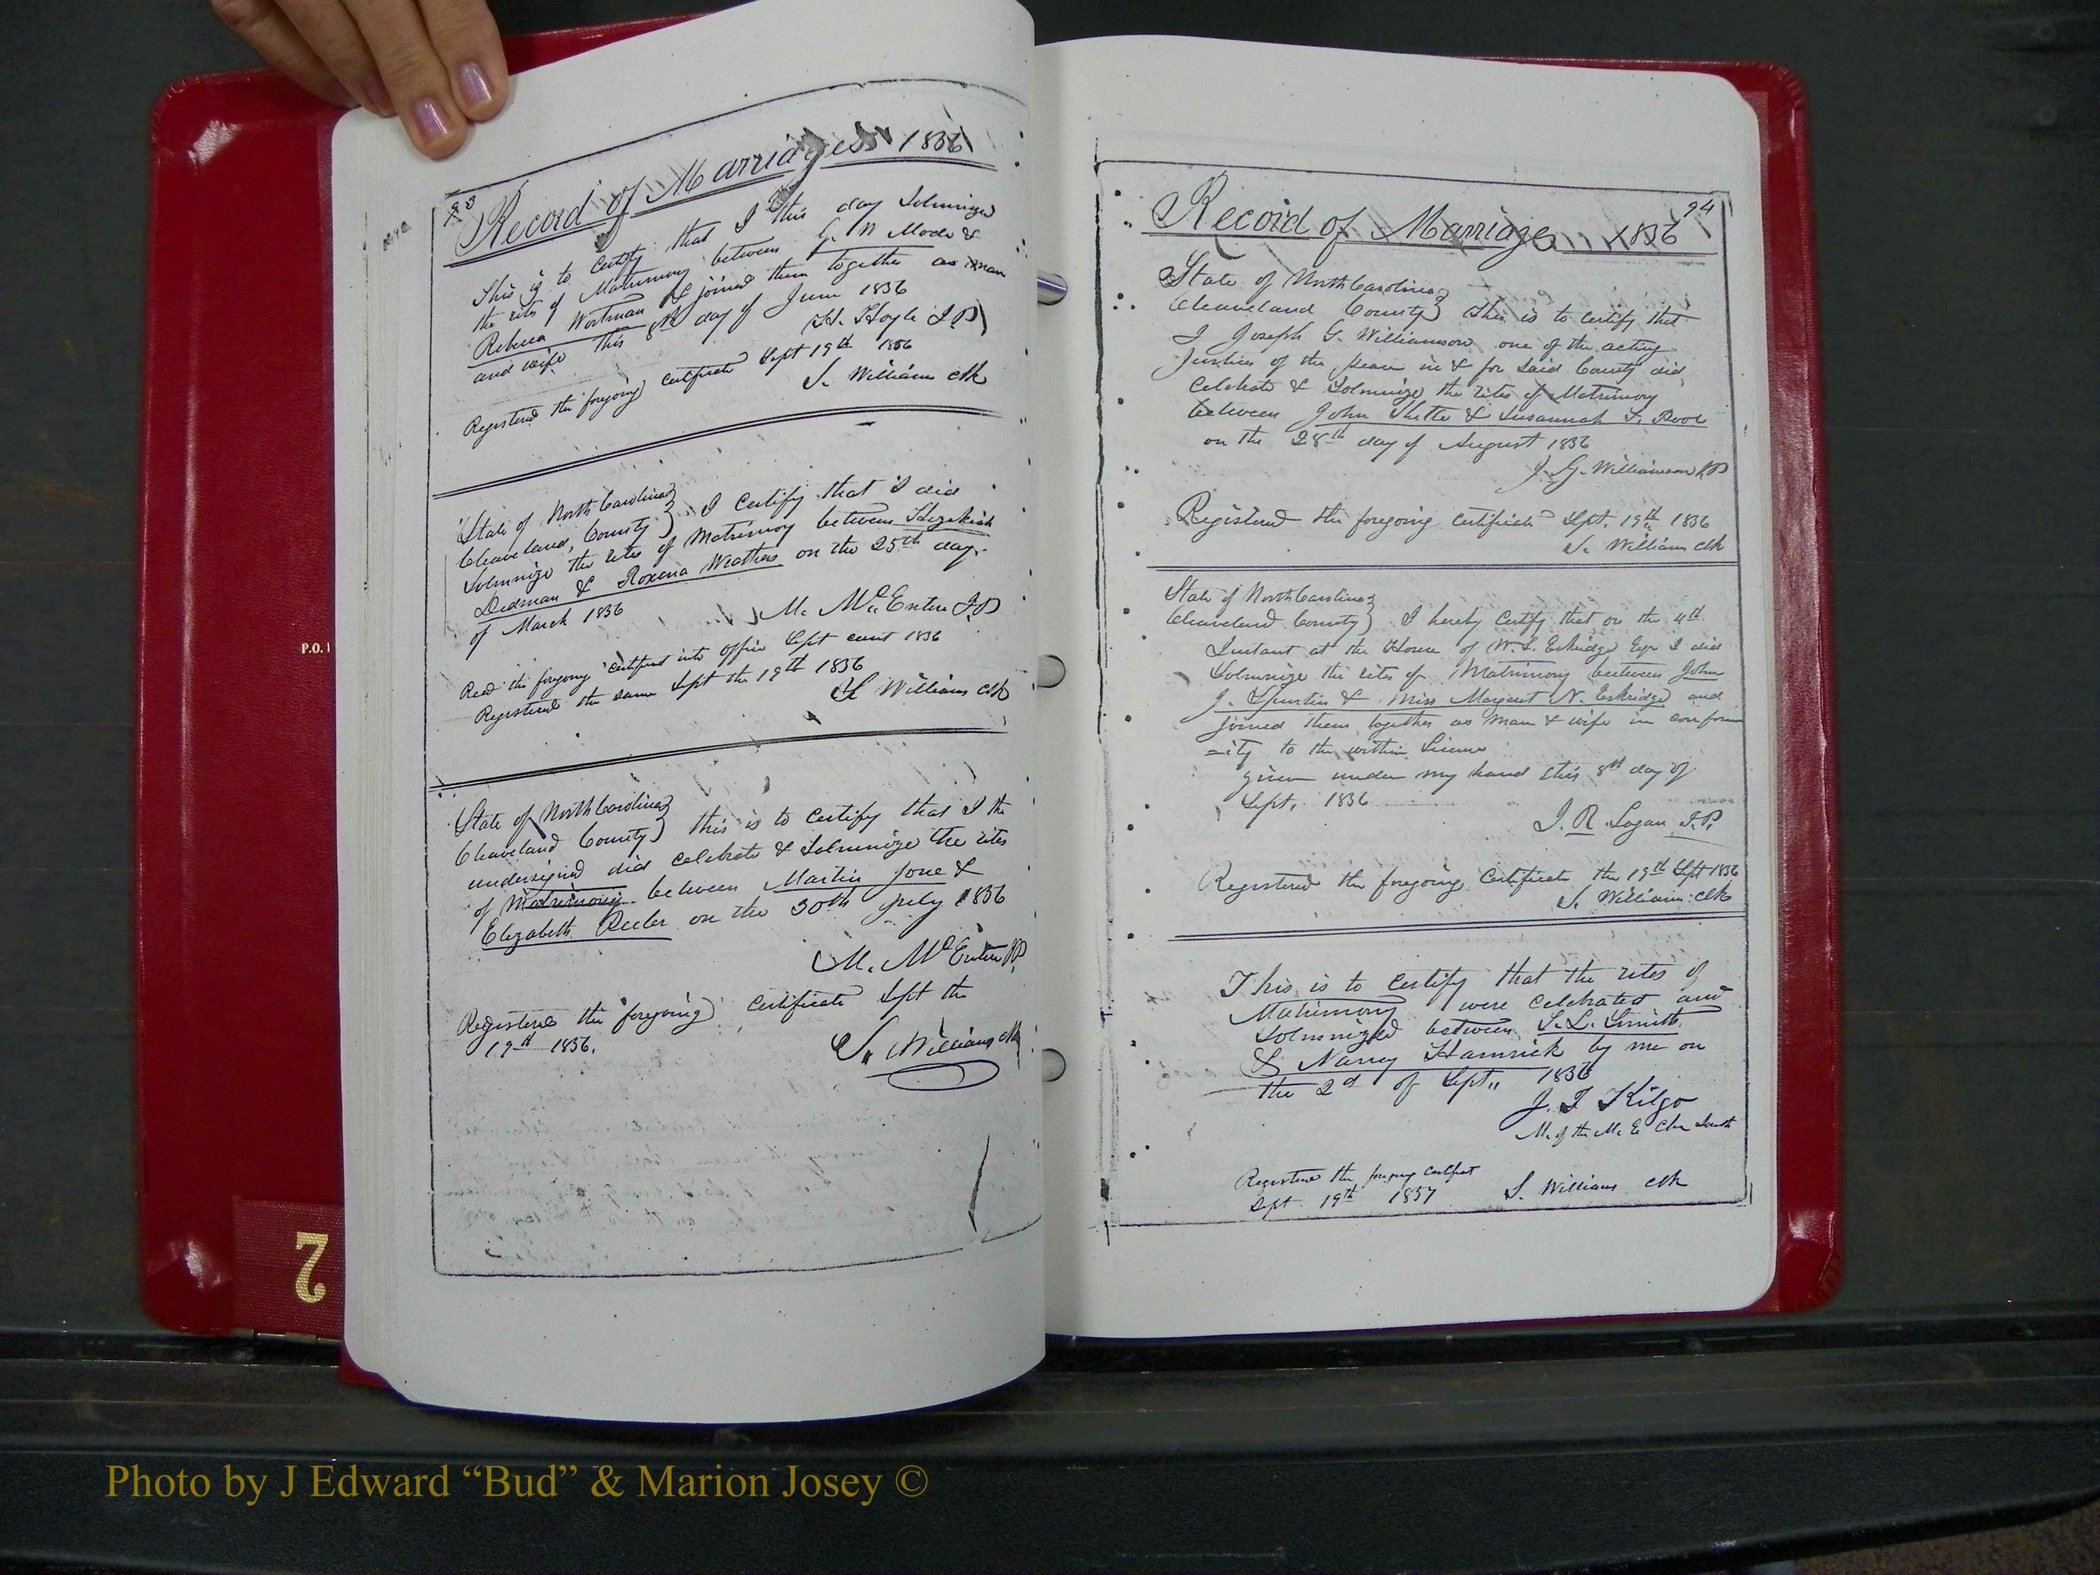 93
Record of Marriages 1856
This is to certify that I this day Solemnize
the rites of Matrimony between G. W Mode &
Rebeca Wortman & joined them together as man
and wife this 8th day of June 1856
H. Hoyle J.P.
Registered the foregoing certificate Sept 19th 1856
S. Williams Clk
State of North Carolina
Cleaveland County I certify that I did
Solemnize the rites of Matrimony between Hezekiah
Dedman & Roxena Weathers on the 25th day
of March 1856
M. McEntire J.P
Recd the foregoing certificat into office Sept court 1856
Registered the same Sept the 19th 1856
S Williams Clk
State of North Carolina
Cleaveland County this is to certify that I the
undersigned did celebrate & Solemnize the rites
of Matrimony between Martin Jone &
Elizabeth on the 30th July 1856
M. McEntire JP
Registered the foregoing certificate Sept the
19th 1856.
S. Williams Clk
P.O.
2
94
Record of Marriage 1856
State of North Carolina
Cleaveland County This is to certify that
I Joseph G. Williamson one of the acting
Justices of the peace in & for said County did
celebrate & Solemnize the rites of Matrimony
between John & Susannah
on the 28th day of August 1856
J. G. Williamson JP
Registered the foregoing certificate Sept. 19th 1856
S. Williams Clk
State of North Carolina
Cleaveland County I hereby certify that on the 4th
Instant at the House of W. S. Eskridge Esqr I did
Solemnize the rites of Matrimony between John
J. & Miss Margaret N. Eskridge and
joined them together as man & wife in conform
ity to the within License
given under my hand this 8th day of
Sept. 1856
J. R Logan J.P.
Registered the foregoing certificate the 19th Sept 1856
S. Williams Clk
This is to certify that the rites of
Matrimony were celebrated and
Solemnized between S. L. Smith
& Nancy Hamrick by me on
the 2d of Sept 1856
J. T Kilgo
M. of the M. E Chr South
Registered the foregoing certificat
Sept 19th 1857 S. Williams Clk
Photo by J Edward “Bud” & Marion Josey ©